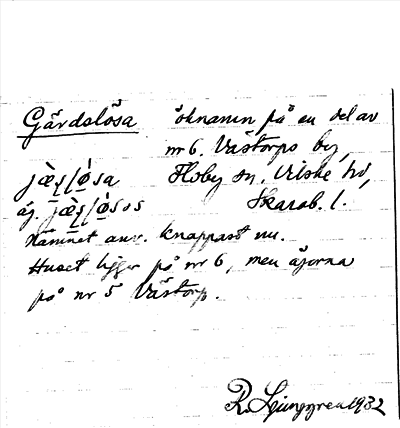 Gärdslösa öknamn på en del av
nr 6. Västorps by,
jæ̀ʂlø̀sa Floby sn, Vilske hd,
äg. jæ̀ʂlø̀sɘs Skarab. l.
Namnet anv. knappast nu.
Huset ligger på nr 6, men ägorna
på nr 5 Västorp.
R. Ljunggren 1932